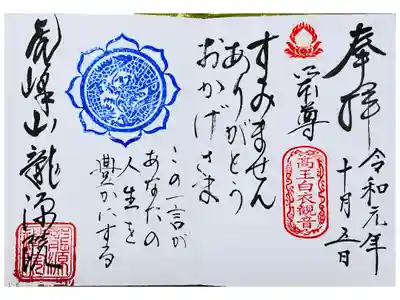 奉拝
令和元年
十月五日
本尊
高王白衣観音
すみません
ありがとう
おかげさま
この一言が
あなたの
人生を
豊かにする
虎峰山龍源院
龍源院